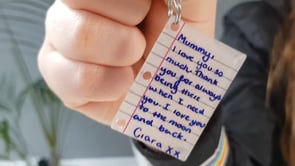 Mummy,
I love you so
much. Thank
you for always
being there
when I need
you. I love you
to the moon
and back.
Ciara xx